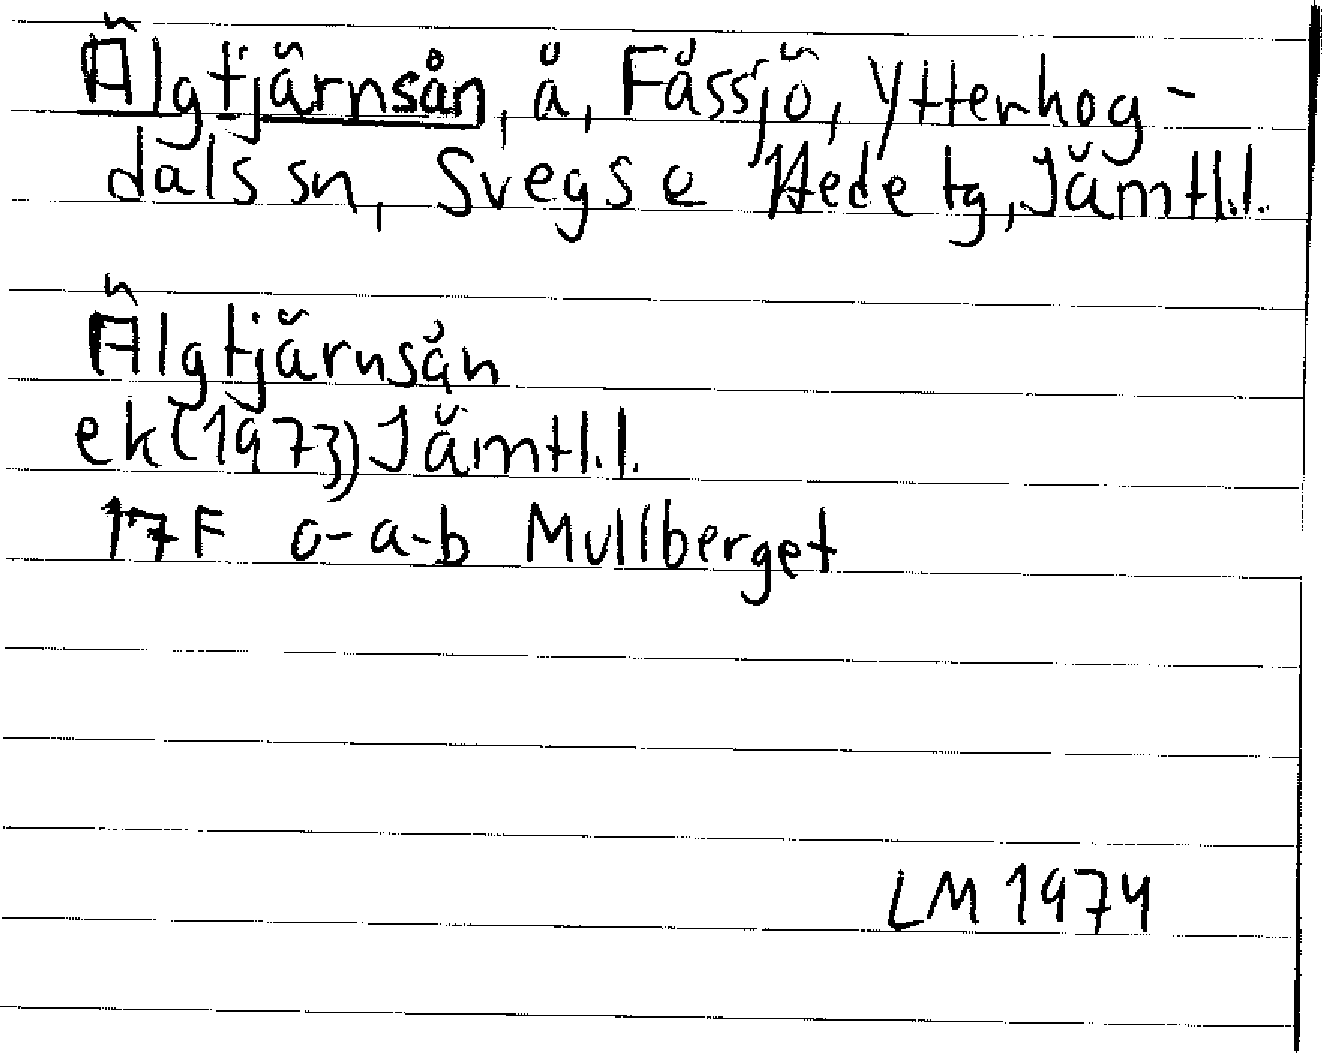 Älgtjärnsån, å, Fåssjö, Ytterhog-
dals sn, Svegs o Hede tg, Jämtl.l.
Älgtjärnsån
ek (1973) Jämtl.l.
17F o-a-b Mullberget
LM 1974